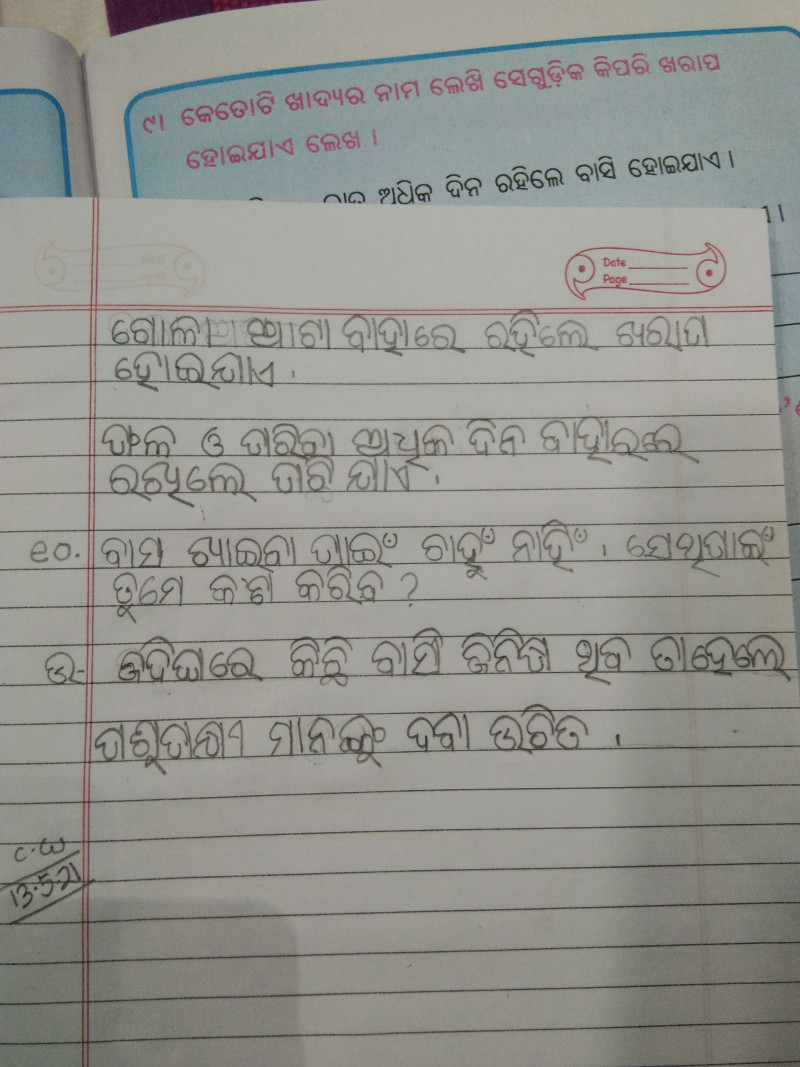 ୯। କେତୋଟି ଖାଦ୍ୟର ନାମ ଲେଖି ସେଗୁଡ଼ିକ କିପରି ଖରାପ
ହୋଇଯାଏ ଲେଖ ।
ଅଧିକ ଦିନ ରହିଲେ ବାସି ହୋଇଯାଏ ।
Date
Page
ଗୋଳା ଅଟା ବାହାରେ ରହିଲେ ଖରାପ
ହୋଇଯାଏ .
ଫଳ ଓ ପରିବା ଅଧିକ ଦିନ ବାହାରରେ
ରଖିଲେ ପଚି ଯାଏ .
୧୦. ବାସି ଖାଇବା ପାଇଂ ଚାହୁଂ ନାହିଂ . ସେଥିପାଇଂ
ତୁମେ କଣ କରିବ ?
ଉ- ଜଦି ଘରେ କିଛି ବାସି ଜିନିଷ ଥିବ ତାହେଲେ
ପଶୁପକ୍ଷୀ ମାନଙ୍କୁ ଦବା ଉଚିତ .
C.W
13.5.21